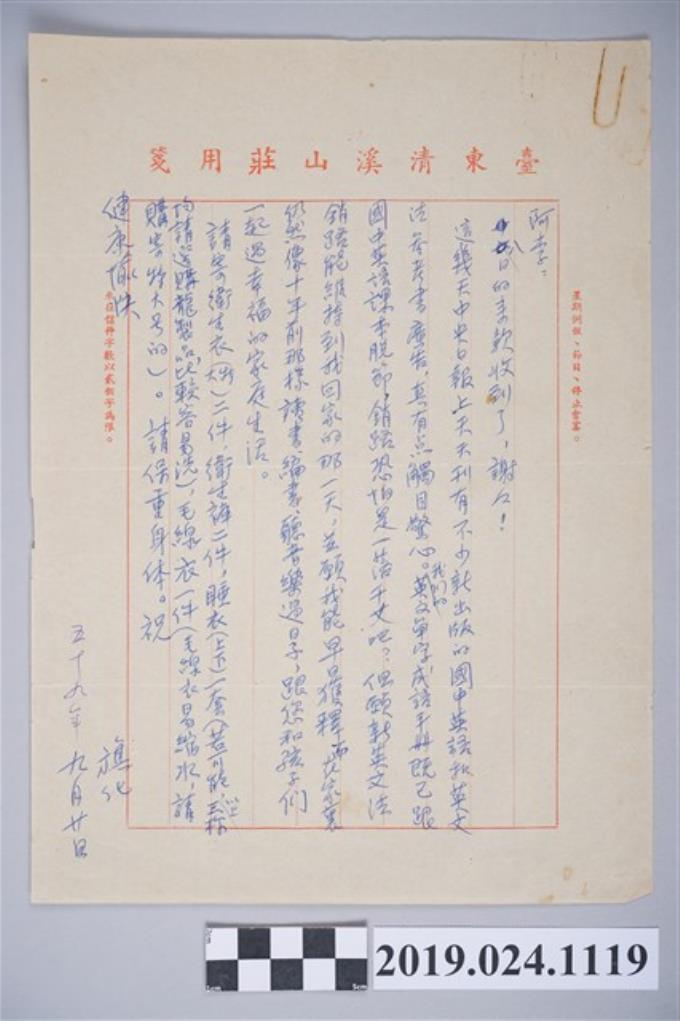 臺東清溪山莊用箋
星期例假、節日、停止書寫。
阿李：
日的来款收到了，謝々！
這幾天中央日報上天天刊有不少新出版的國中英語和英文
法参考書廣告，真有点觸目驚心。我们的英文單字成語手册既已跟
國中英語課本脱節，銷路恐怕是一落千丈吧？但願新英文法
銷路能維持到我回家的那一天，並願我能早日獲釋而
仍然像十年前那樣讀書、編書、聽音樂過日子，跟您和孩子们
一起過幸福的家庭生活。
請寄衛生衣二件，衛生褲二件，睡衣（上下）一套（若可能，以上三种
均請選購龍製品比較容易洗），毛線衣一件（毛線衣易縮水，請
購寄特大号的）。請保重身体。祝
健康愉快
本信信件字數以貳佰字為限。
蕉化
五十九年九月廿日
2019.024.1119